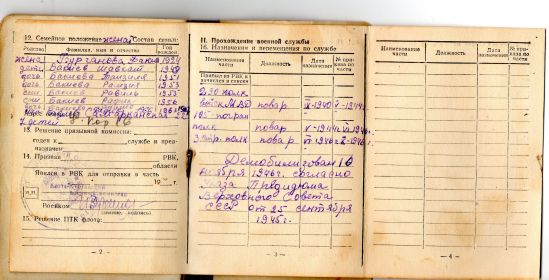 12. Семейное положение женат Состав семьи:
Родство
Фамилия, имя и отчество
Год рожден.
жена Бурганова Факия 1924
дети Бакиев Шавкат 1949
дочь Бакиева 1951
дочь Бакиева Рамзия 1953
сын Бакиев Равиль 1955
сын Бакиев Рафик 1956
дочь Бакиева
7 детей
13. Решение призывной комиссии:
годен к службе и предназначен
14. Призван РВК,
области
Явился в РВК для отправки в часть
19 г.
М.П.
Военком
(звание, подпись)
15. Решение ПТК флота:
— 2 —
II. Прохождение военной службы
16. Назначения и перемещения по службе
Наименование части
Должность
Дата назначения
№ приказа по части
Прибыл из РВК и зачислен в списки
230 полк
войск МВД повар
105 погран
полк повар
полк повар
Демобилизован 10
ноября 1946г. согласно
Указа Президиума
Верховного Совета
СССР от 25 сентября
1945г.
— 3 —
Наименование части
Должность
Дата назначения
№ приказа по части
— 4 —